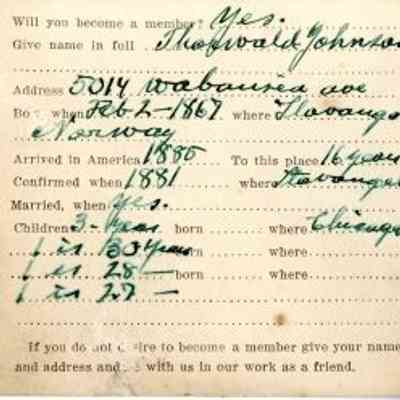 Will you become a member? Yes.
Give name in full Thorwald Johnson
Address 5014 Wabansia ave
Bo when Feb 2-1867 where Stavanger
Norway
Arrived in America 1885 To this place 16 years
Confirmed when 1881 where Stavanger
Married, when yes.
Children 3- born where Chicago
1 is 30 years born where
1 is 28 — born where
1 is 27 —
If you do not desire to become a member give your name
and address and with us in our work as a friend.